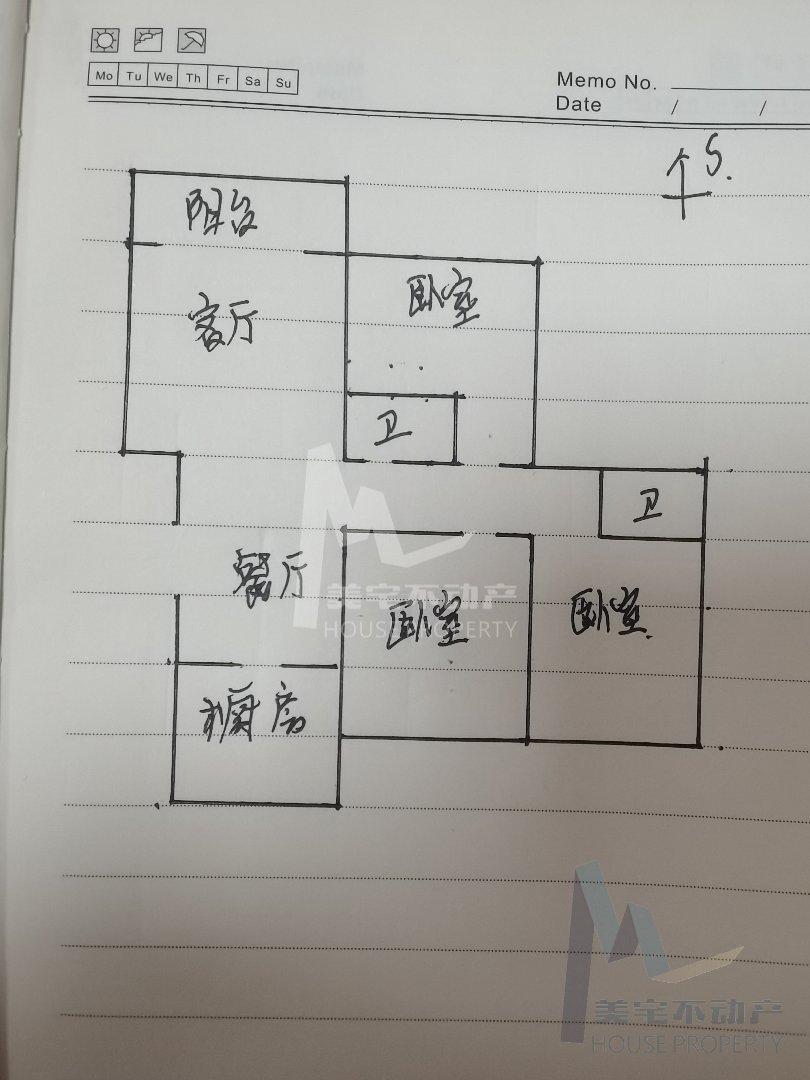 Mo Tu We Th Fr Sa Su
Memo No.
Date / /
S.
阳台
客厅
卧室
卫
卫
餐厅
卧室
卧室
厨房
美宅不动产
HOUSE PROPERTY
美宅不动产
HOUSE PROPERTY